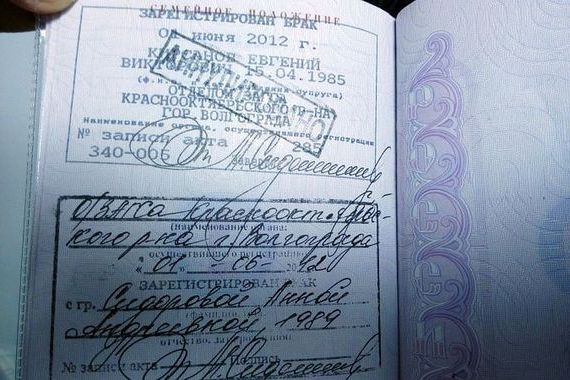 СЕМЕЙНОЕ ПОЛОЖЕНИЕ
ЗАРЕГИСТРИРОВАН БРАК
01 июня 2012 г.
ЕВГЕНИЙ
15.04.1985
АННУЛИРОВАНО
ОТДЕЛОМ
КРАСНООКТЯБРЬСКОГО Р-НА
ГОР. ВОЛГОГРАДА
наименование органа, осуществившего регистрации
№ записи акта 285
340-006
О/ЗАГСа Краснооктябрьс-
кого р-на г. Волгограда
(наименование органа:
осуществившего регистрацию
"01" - 06 - 2012
ЗАРЕГИСТРИРОВАН БРАК
с гр. Сидоровой Анной
Андреевной, 1989
№ записи акта Подпись